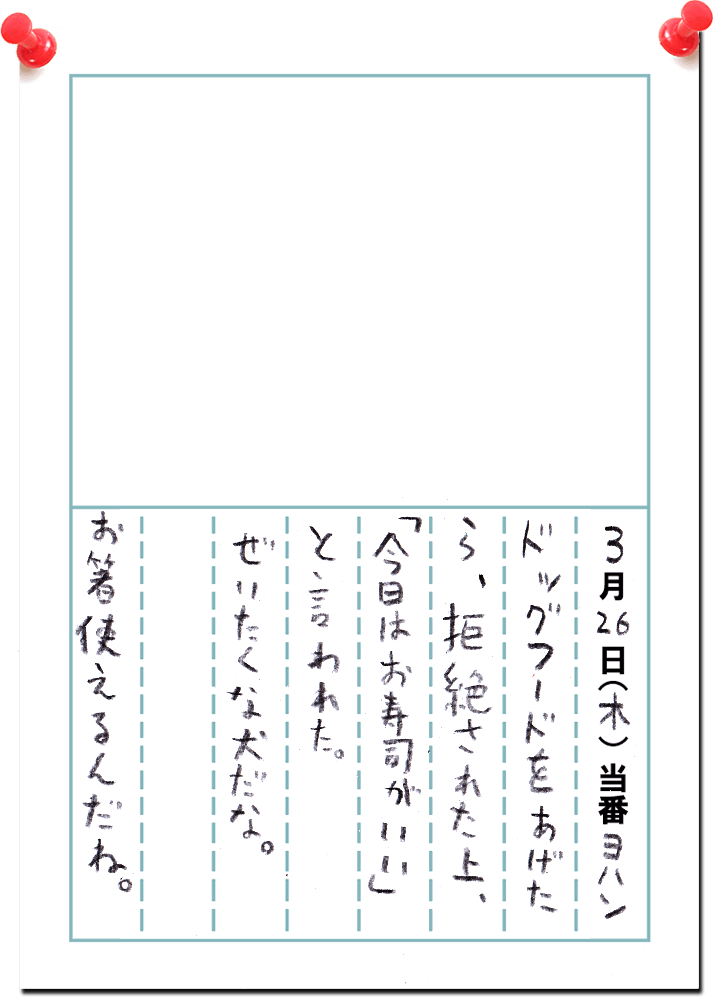 3月26日(木)当番ヨハン
ドッグフードをあげた
ら、拒絶された上、
「今日はお寿司がいい」
と言われた。
ぜいたくな犬だな。
お箸使えるんだね。